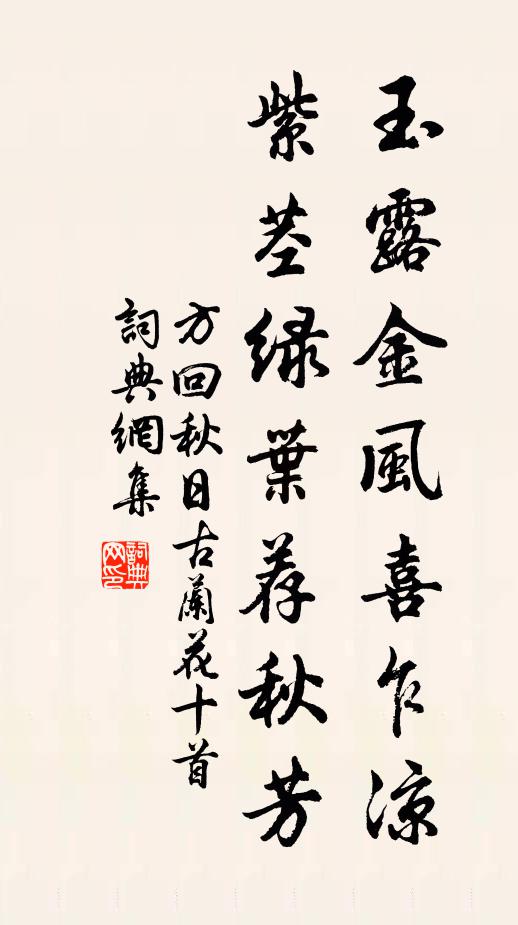 玉露金風喜乍涼
紫茎緑葉荐秋芳
方回秋日古蘭花十首
詞典網集
詞典网印